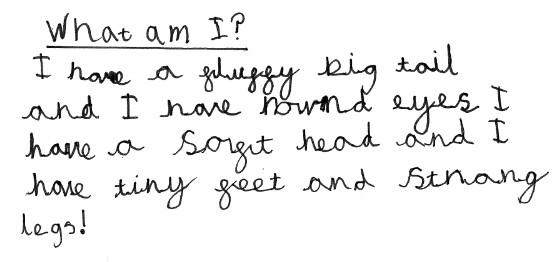 What am I?
I have a fluffy big tail
and I have rownd eyes I
have a Sorft head and I
have tiny feet and strnang
legs!